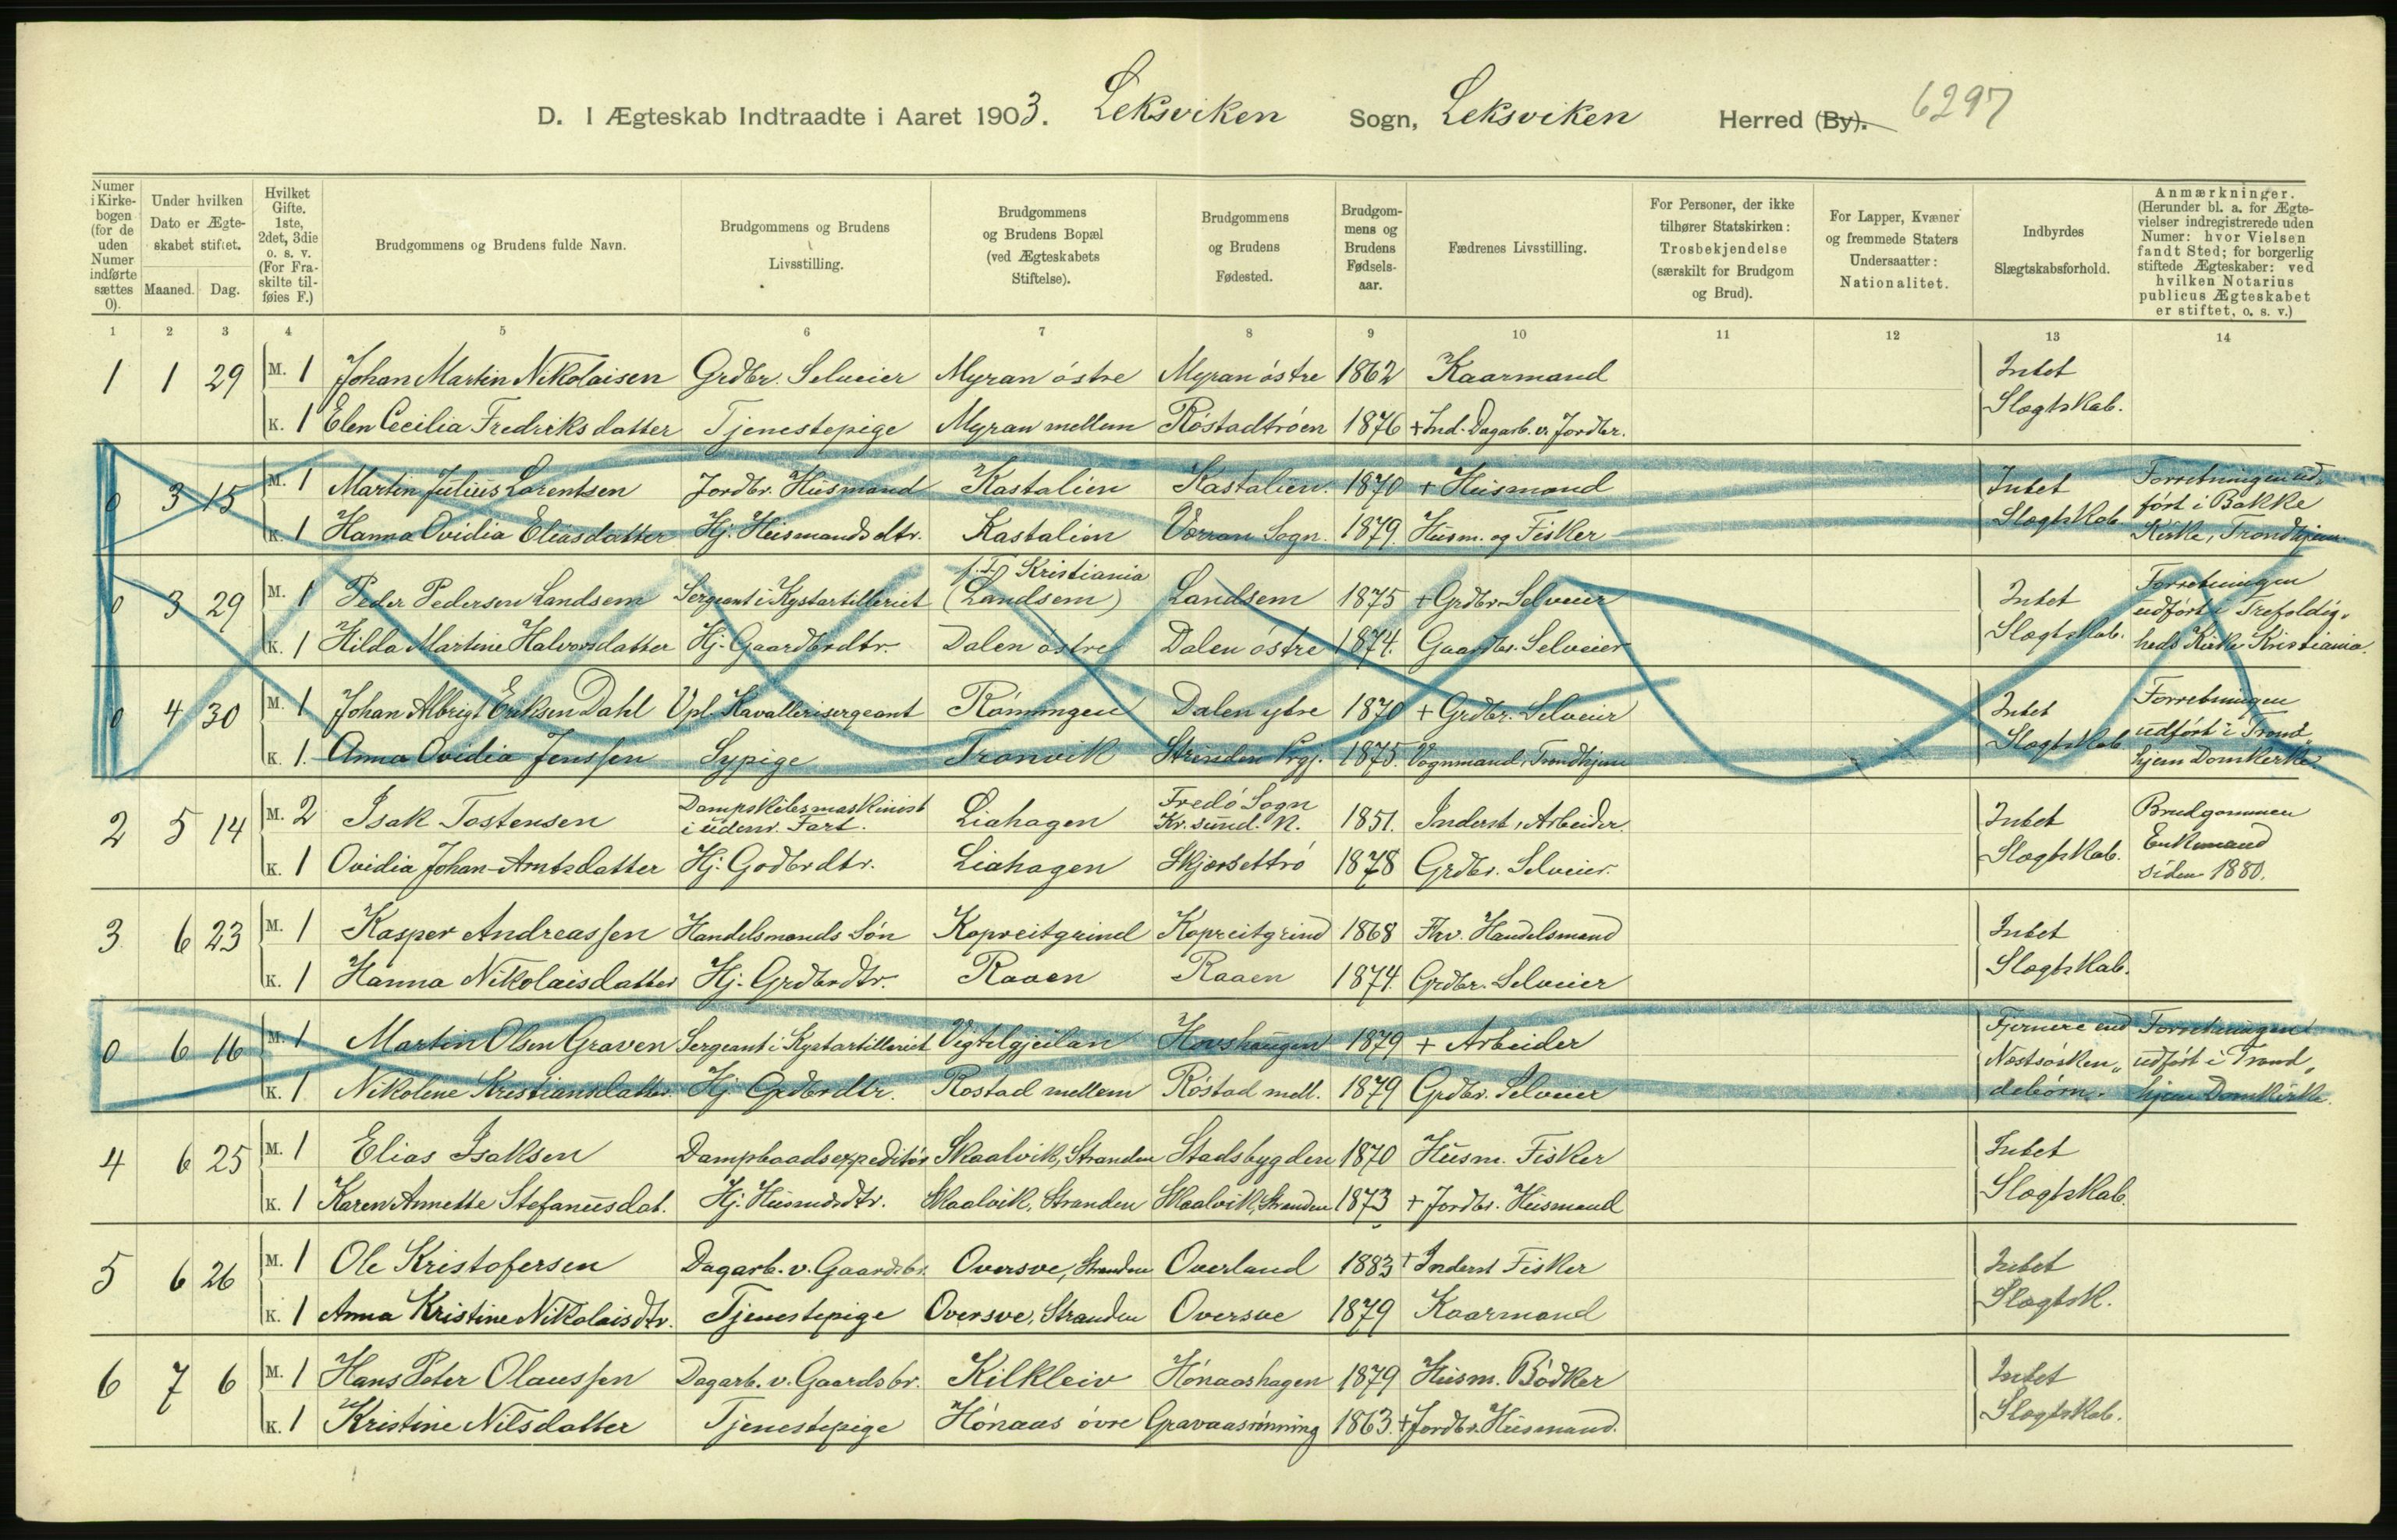 D. I Ægteskab Indtraadte i Aaret 1903. Leksviken Sogn, Leksviken Herred (By). 6297
Numer i Kirke-bogen (for de uden Numer indførte sættes 0).
Under hvilken Dato er Ægte-skabet stiftet.
Maaned. Dag.
Hvilket Gifte. 1ste, 2det, 3die o. s. v. (For Fra-skilte til-føies F.)
Brudgommens og Brudens fulde Navn.
Brudgommens og Brudens Livsstilling.
Brudgommens og Brudens Bopæl (ved Ægteskabets Stiftelse).
Brudgommens og Brudens Fødested.
Brudgom-mens og Brudens Fødsels-aar.
Fædrenes Livsstilling.
For Personer, der ikke tilhører Statskirken: Trosbekjendelse (særskilt for Brudgom og Brud).
For Lapper, Kvæner og fremmede Staters Undersaatter: Nationalitet.
Indbyrdes Slægtskabsforhold.
Anmærkninger. (Herunder bl. a. for Ægte-vielser indregistrerede uden Numer: hvor Vielsen fandt Sted; for borgerlig stiftede Ægteskaber: ved hvilken Notarius publicus Ægteskabet er stiftet, o. s. v.)
1 2 3 4 5 6 7 8 9 10 11 12 13 14
1 1 29 M. 1 Johan Martin Nikolaisen Grdbr. Selveier Myran östre Myran östre 1862 Kaarmand Intet
K. 1 Elen Cecilia Fredriksdatter Tjenestepige Myran mellem Röstadtröen 1876 + Ind. Dagarb. v. Jordbr. Slægtskab.
0 3 15 M. 1 Martin Julius Lorentsen Jordbr. Husmand Kastalien Kastalien. 1870 + Husmand Intet Forretningen ud-
ført i Bakke
K. 1 Hanna Ovidia Eliasdatter Hj. Husmandsdtr. Kastalien Værran Sogn. 1879. Husm. og Fisker Slægtskab Kirke, Trondhjem
f. T. Kristiania
0 3 29 M. 1 Peder Pedersen Landsem Sergeant i Kystartilleriet (Landsem) Landsem 1875 + Grdbr. Selveier Intet Forretningen
udført i Trefoldig-
K. 1 Hilda Martine Halvorsdatter Hj. Gaardbrdtr. Dalen östre Dalen östre 1874. Gaardbr. Selveier Slægtskab. heds Kirke Kristiania.
0 4 30 M. 1 Johan Albrigt Eriksen Dahl Vpl. Kavallerisergeant Rönningen Dalen ytre 1870 + Grdbr. Selveier Intet Forretningen
udført i Trond-
K. 1. Anna Ovidia Jenssen Sypige Tronvik Strinden Prgj. 1875. Vognmand, Trondhjem Slægtskab hjem Domkirke.
2 5 14 M. 2 Isak Tostensen Dampskibsmaskinist i udenr. Fart. Liahagen Fredö Sogn Kr. sund. N. 1851. Inderst, Arbeider. Intet Brudgommen
Enkemand
K. 1 Ovidia Johan-Arntsdatter Hj. Godbrdtr. Liahagen Skjærsettrö 1878 Grdbr. Selveier. Slægtskab. siden 1880.
3 6 23 M. 1 Kasper Andreassen Handelsmands Sön Kopreitgrind Kopreitgrind 1868 Fhv. Handelsmand Intet
K. 1 Hanna Nikolaisdatter Hj. Grdbrdtr. Raaen Raaen 1874. Grdbr. Selveier Slægtskab.
0 6 16 M. 1 Martin Olsen Graven Sergeant i Kystartilleriet Vigtelgjeilan Hovshaugen 1879 + Arbeider Fjernere end Forretningen
Næstsösken„ udført i Trond„
K. 1 Nikoline Kristiansdatter Hj. Grdbrdtr. Rostad mellem Röstad mell. 1879 Grdbr. Selveier debörn. hjem Domkirke.
4 6 25 M. 1 Elias Isaksen Dampbaadsexpeditör Skaalvik, Stranden Stadsbygden 1870 Husm. Fisker Intet
K. 1 Karen Annette Stefanusdat. Hj. Husmdsdtr. Skaalvik, Stranden Skaalvik, Stranden 1873 + Jordbr. Husmand Slægtskab.
5 6 26 M. 1 Ole Kristofersen Dagarb. v. Gaardsbr. Oversve, Stranden Overland 1883 + Inderst Fisker Intet
K. 1 Anna Kristine Nikolaisdtr. Tjenestepige Oversve, Stranden Oversve 1879 Kaarmand Slægtsk.
6 7 6 M. 1 Hans Peter Olaussen Dagarb. v. Gaardsbr. Kilkleiv Hönaashagen 1879 Husm. Bödker Intet
K. 1 Kristine Nilsdatter Tjenestepige Hönaas övre Gravaasrönning 1863. + Jordbr. Husmand. Slægtskab.